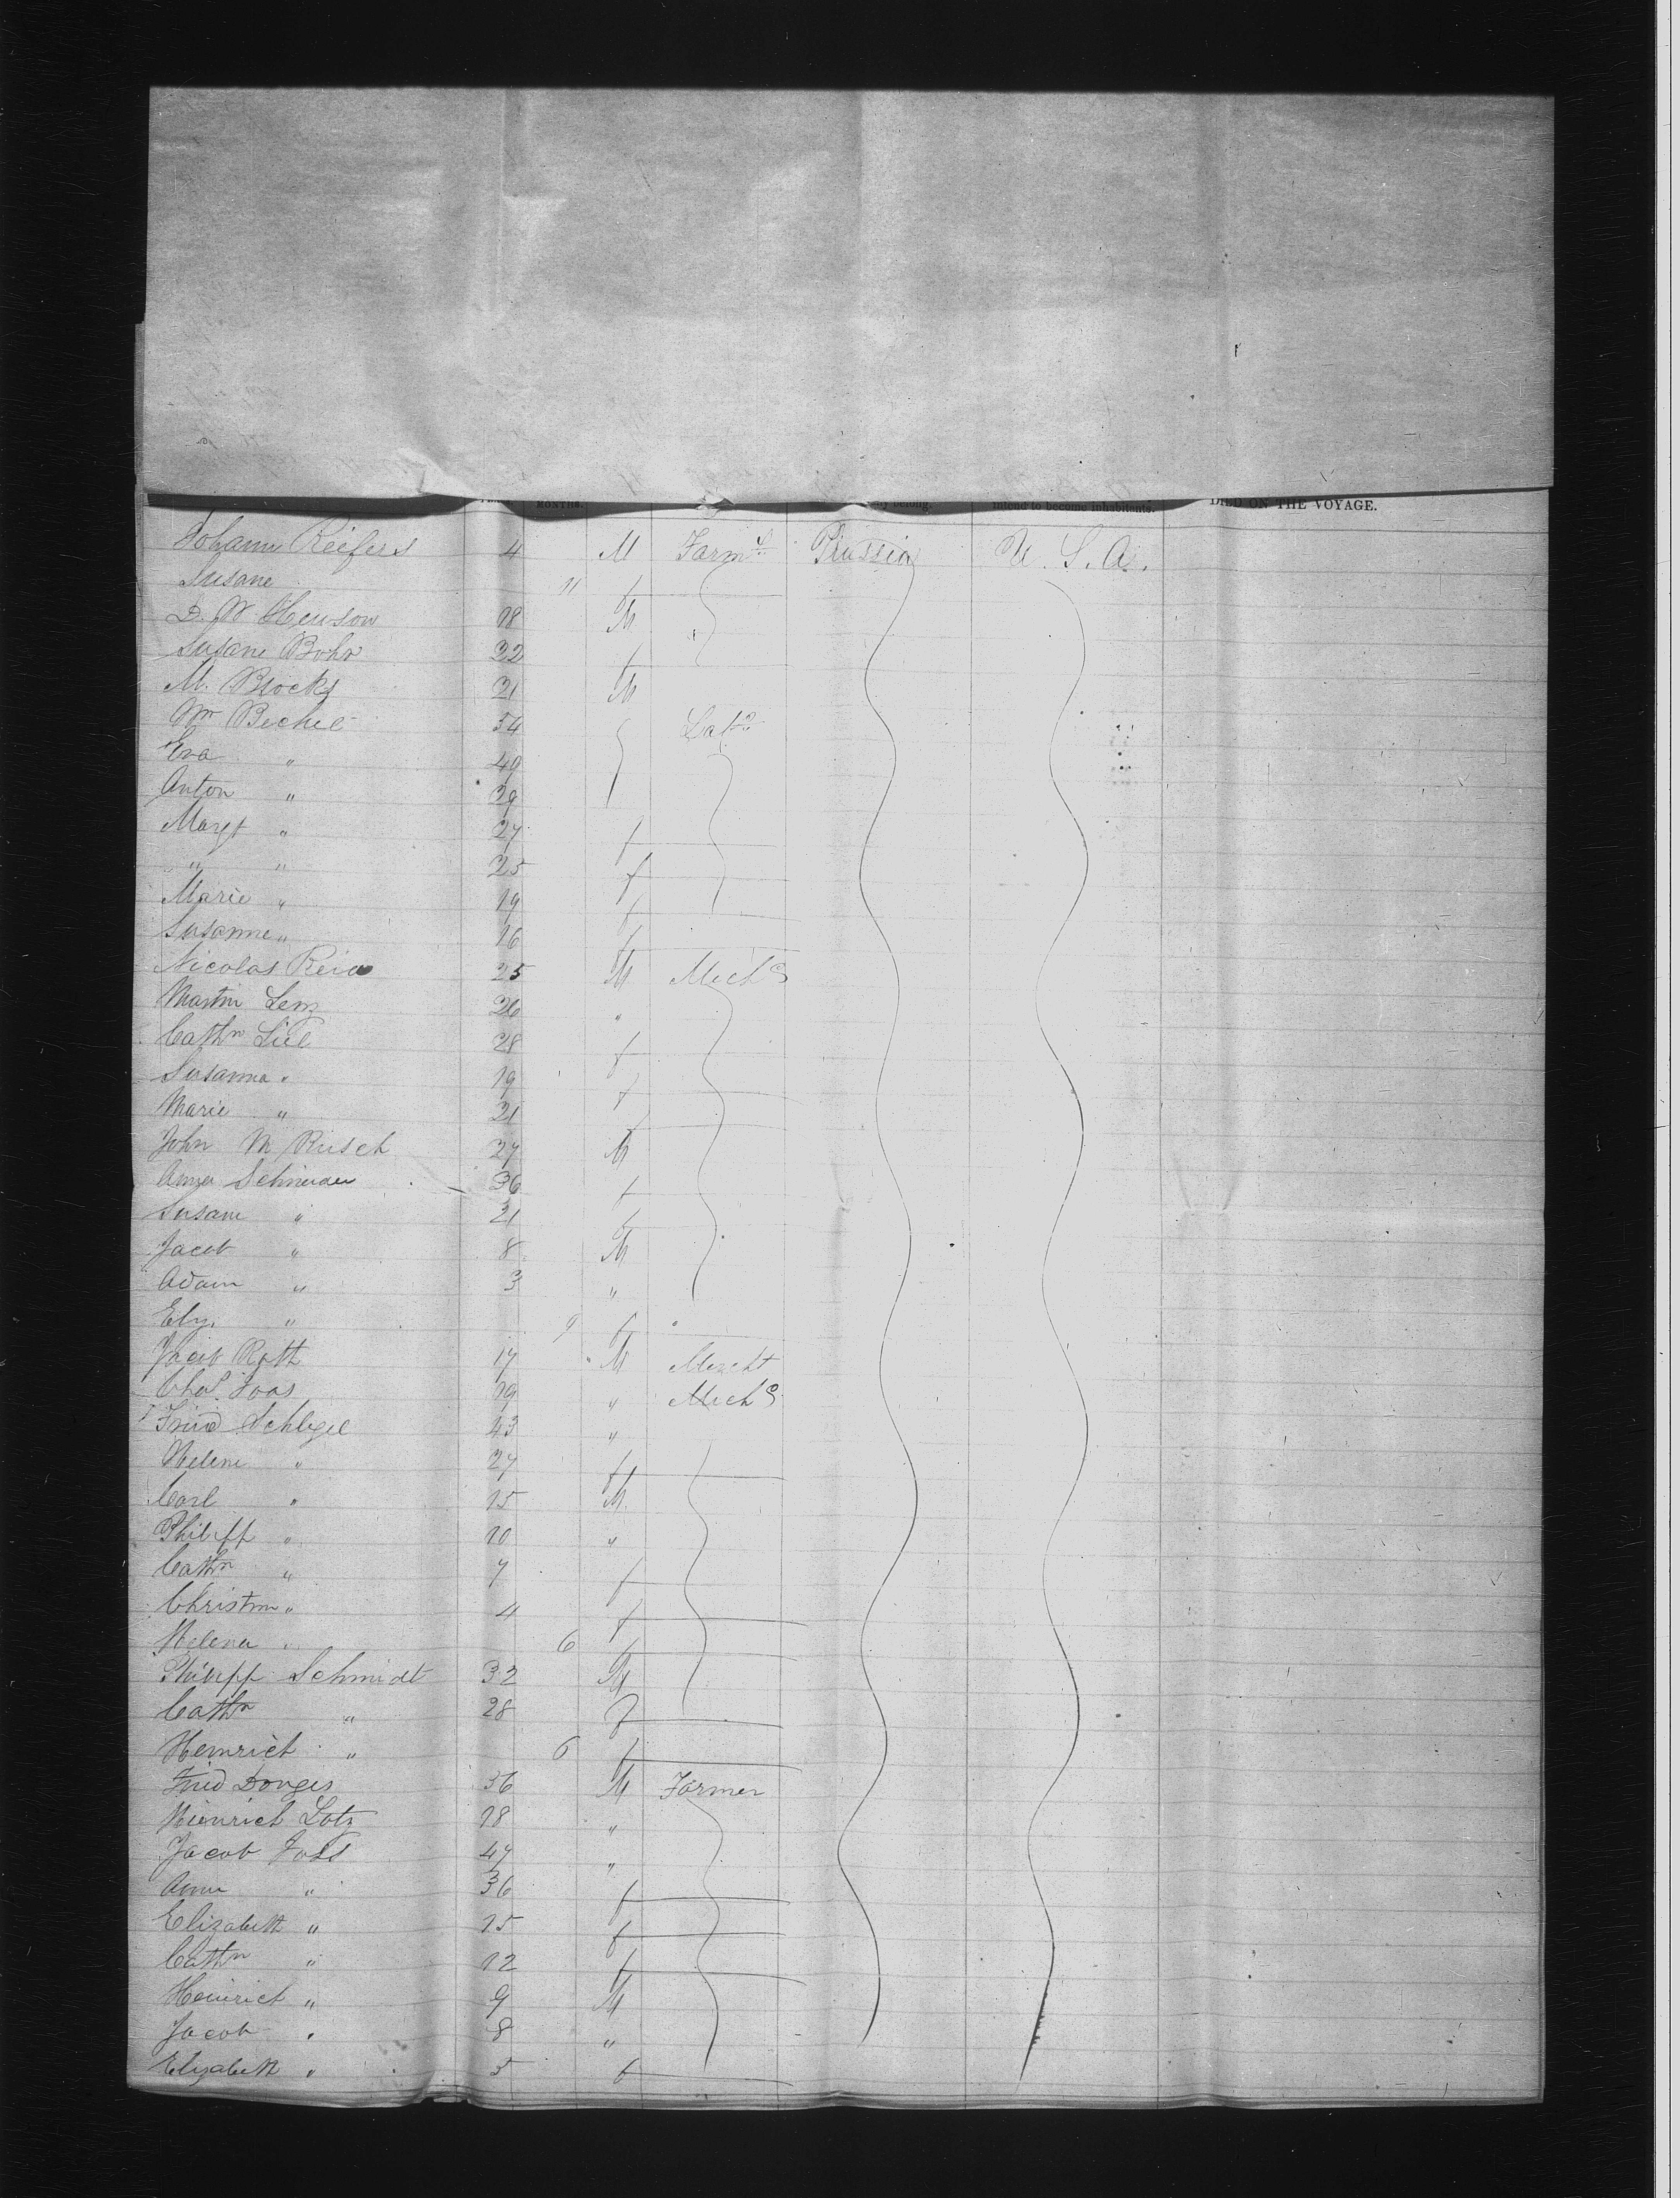 MONTHS. they belong. intend to become inhabitants. DIED ON THE VOYAGE.
Johann Reifers 4 M Farmr Prussia U. S. A.
Susane 11 f
D. W Henson 18 M
Susane Bohr 32 f
M. Brocks 21 M
Wm Bechel 54 Labr
Eva " 40
Anton " 29
Margt " 27 f
" " 25 f
Marie " 19 f
Susanne " 16 f
Nicolas 25 M Mechc
Martin Lenz 26 "
Cathn Liel 28 f
Susanna " 19 f
Marie " 21 f
John M Rusch 27 M
Anna Schneider 36 f
Susane " 21 f
Jacob " 8 M
Adam " 3 "
Elz. " 9 f
Jacob Roth 17 M Mercht
Chas. Joas 19 " Mechc
Fried Schlegel 43 "
Helene " 27 f
Carl " 15 M
Philipp " 10 "
Cathn " 7 f
Christin " 4 f
Helena " 6 f
Philipp Schmidt 32 M
Cathn " 28 f
Heinrich " 6 f
Fried Donges 36 M Farmer
Heinrich Lotz 18 "
Jacob Joss 47 "
Anna " 36 f
Elizabeth " 15 f
Cathn " 12 f
Heinrich " 9 M
Jacob " 8 "
Elizabeth " 5 f